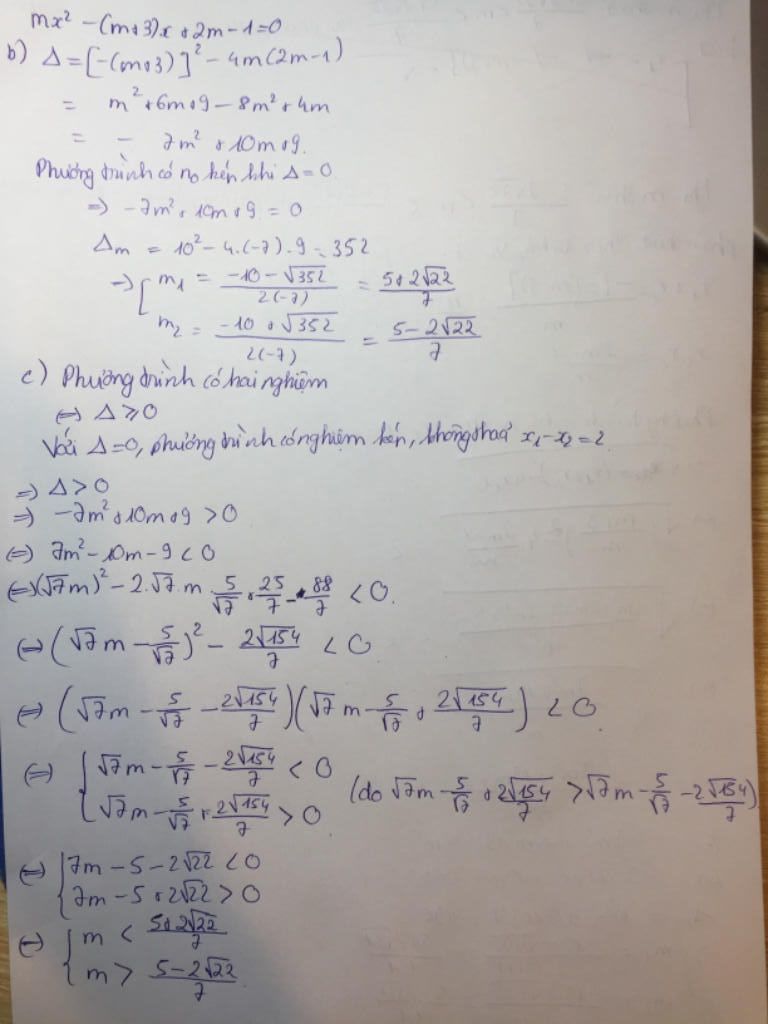 mx² - (m+3)x + 2m - 1 = 0
b) Δ = [-(m+3)]² - 4m(2m-1)
= m² + 6m + 9 - 8m² + 4m
= - 7m² + 10m + 9.
Phương trình có no kép khi Δ = 0
=> -7m² + 10m + 9 = 0
Δm = 10² - 4.(-7).9 = 352
-> [ m₁ = (-10 - √352)/(2(-7)) = (5+2√22)/7
m₂ = (-10 + √352)/(2(-7)) = (5-2√22)/7
c) Phương trình có hai nghiệm
<=> Δ ⩾ 0
Với Δ=0, phương trình có nghiệm kép, không thoả x₁-x₂=2
=> Δ > 0
=> -7m² + 10m + 9 > 0
<=> 7m² - 10m - 9 < 0
<=> (√7m)² - 2.√7.m 5/√7 + 25/7 - 88/7 < 0.
<=> (√7m - 5/√7)² - 2√154/7 < 0
<=> (√7m - 5/√7 - 2√154/7)(√7m - 5/√7 + 2√154/7) < 0
<=> { √7m - 5/√7 - 2√154/7 < 0
√7m - 5/√7 + 2√154/7 > 0 (do √7m - 5/√7 + 2√154/7 > √7m - 5/√7 - 2√154/7)
<=> { 7m - 5 - 2√22 < 0
7m - 5 + 2√22 > 0
<=> { m < (5+2√22)/7
m > (5-2√22)/7